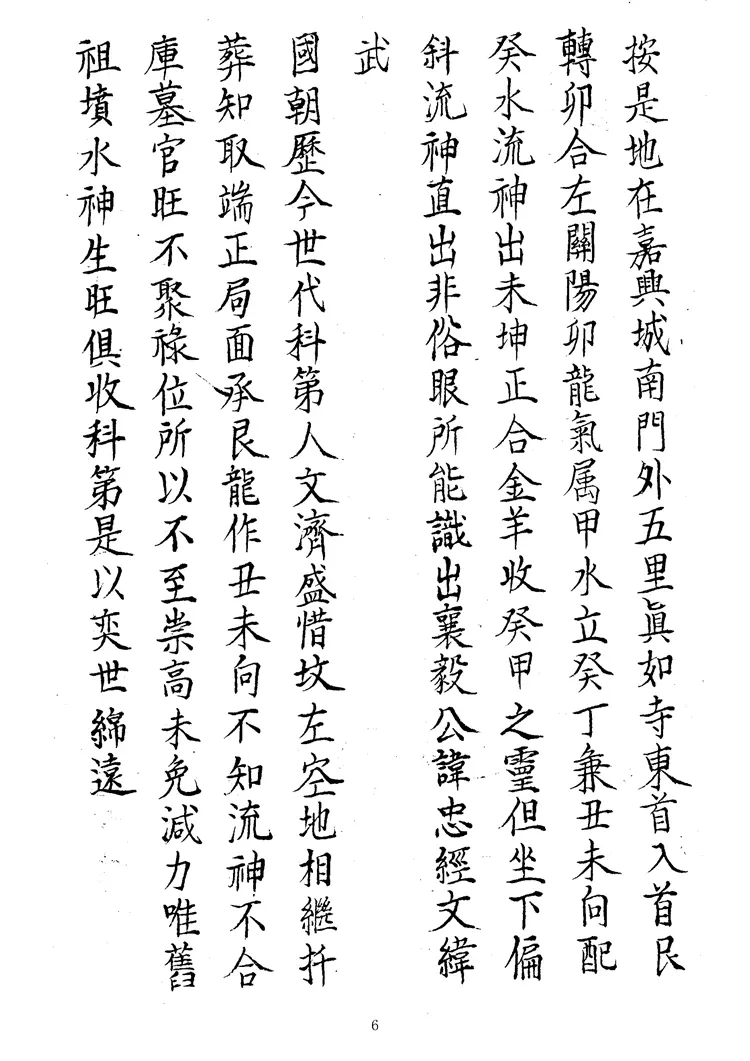 按是地在嘉興城南門外五里眞如寺東首入首艮
轉卯合左關陽卯龍氣属甲水立癸丁兼丑未向配
癸水流神出未坤正合金羊收癸甲之靈但坐下偏
斜流神直出非俗眼所能識出襄毅公諱忠經文緯
武
國朝歷今世代科第人文濟盛惜坟左空地相繼扦
葬知取端正局面承艮龍作丑未向不知流神不合
庫墓官旺不聚祿位所以不至崇高未免減力唯舊
祖墳水神生旺俱收科第是以奕世綿遠
6